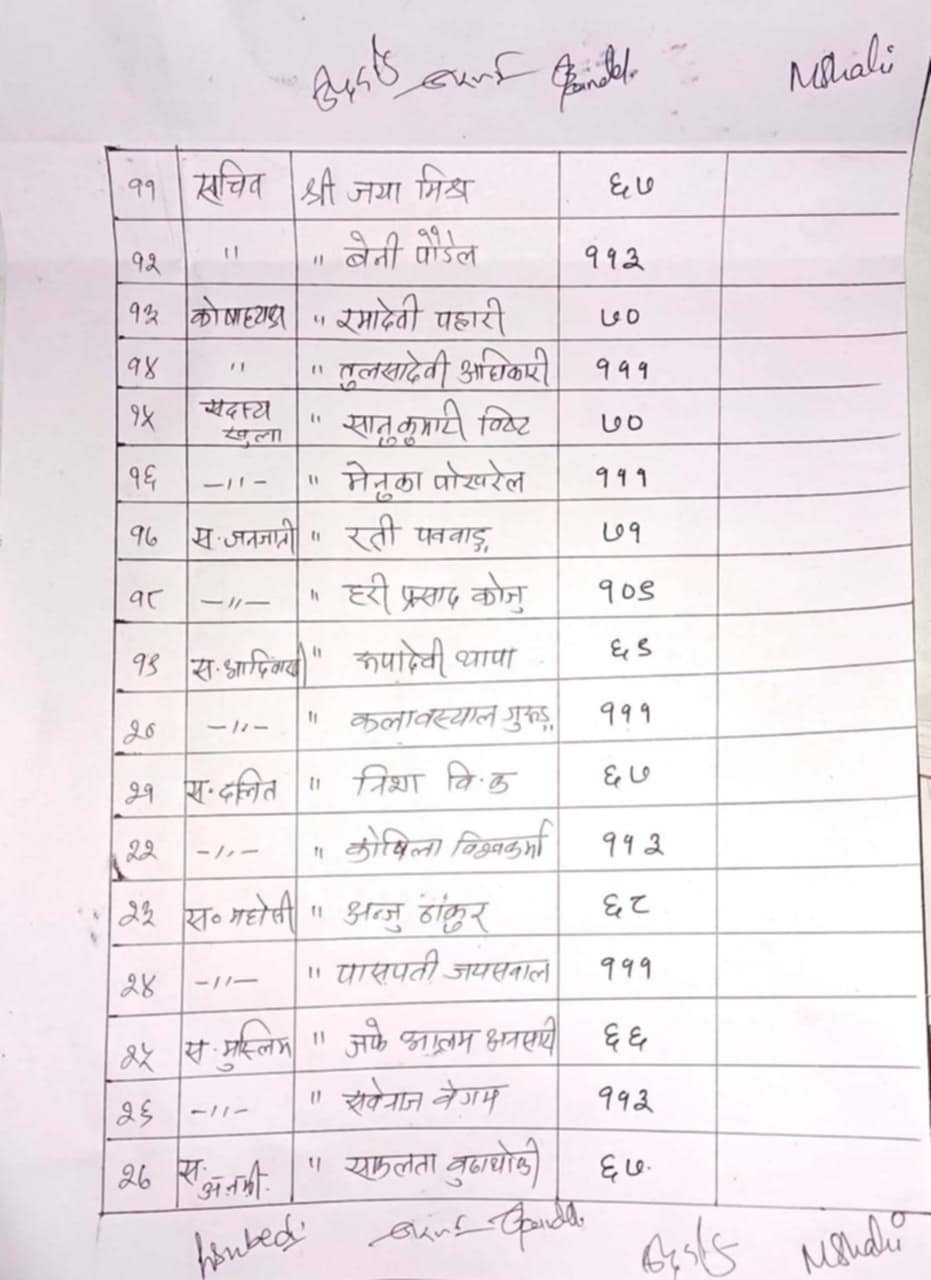 Mshali
११ सचिव श्री जया मिश्र ६७
१२ " " बेनी पौडेल ११२
१३ कोषाध्यक्ष " रमादेवी पहारी ७०
१४ " " तुलसादेवी अधिकारी १११
१५ सदस्य खुला " सानुकुमारी विष्ट ७०
१६ -"- " मेनुका पोखरेल १११
१७ स. जनजाती " रती ७१
१८ -"- " हरी प्रसाद कोजु १०९
१९ स. आदिवासी " रुपादेवी थापा ६९
२० -"- " गुरुङ १११
२१ स. दलित " त्रिशा वि.क ६७
२२ -"- " कोपिला विश्वकर्मा ११२
२३ स० मधेसी " अन्जु ठाकुर ६८
२४ -"- " पासपती जयसवाल १११
२५ स. मुस्लिम " आलम अनसारी ६६
२६ -"- " वेगम ११२
२७ स. " सफलता वुढाथोकी ६७
Mshali